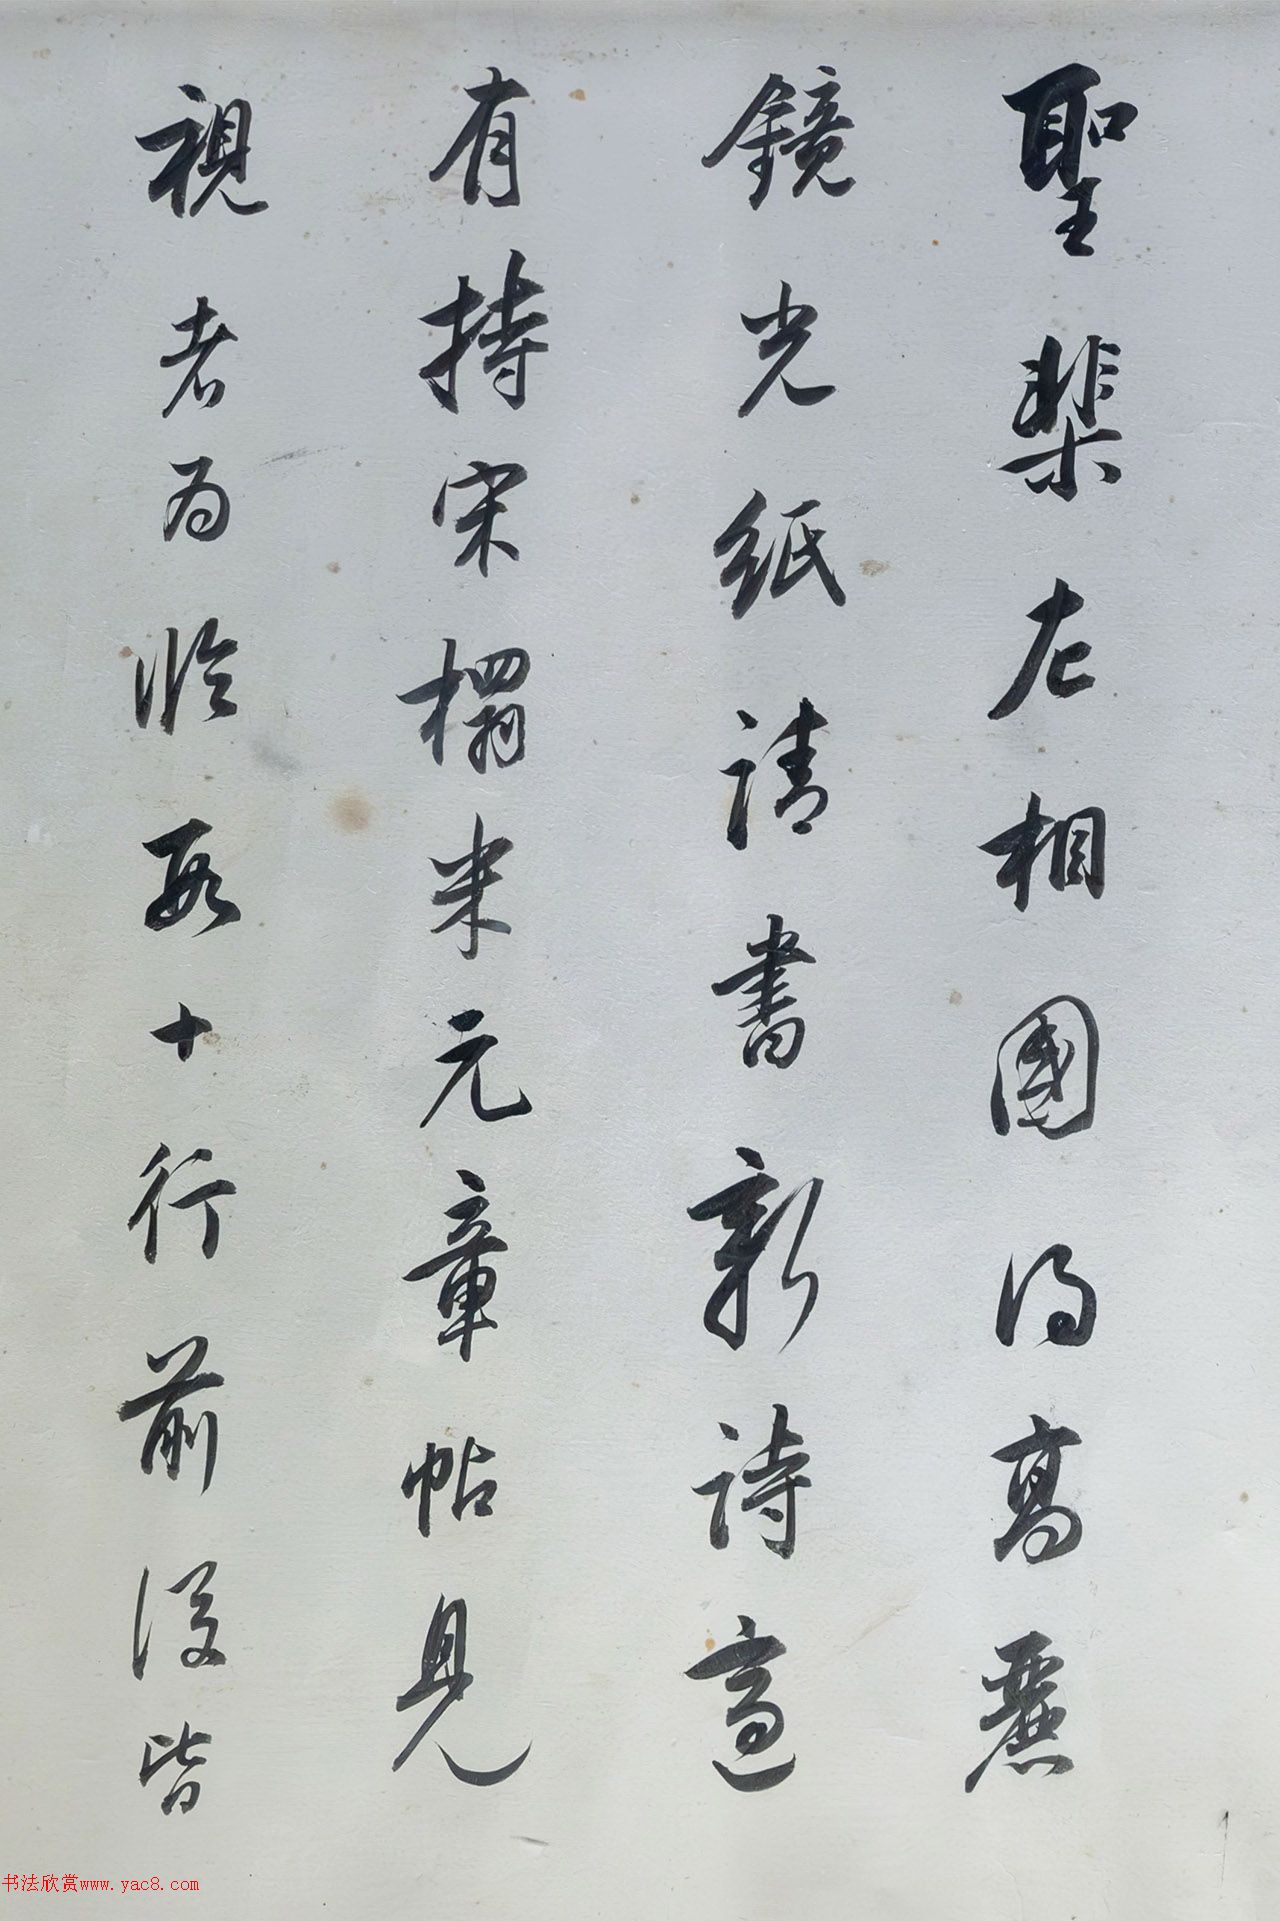 聖棐左相國得高麗
鏡光紙請書新詩適
有持宋榻米元章帖見
視者為臨數十行前後皆
书法欣赏www.yac8.com